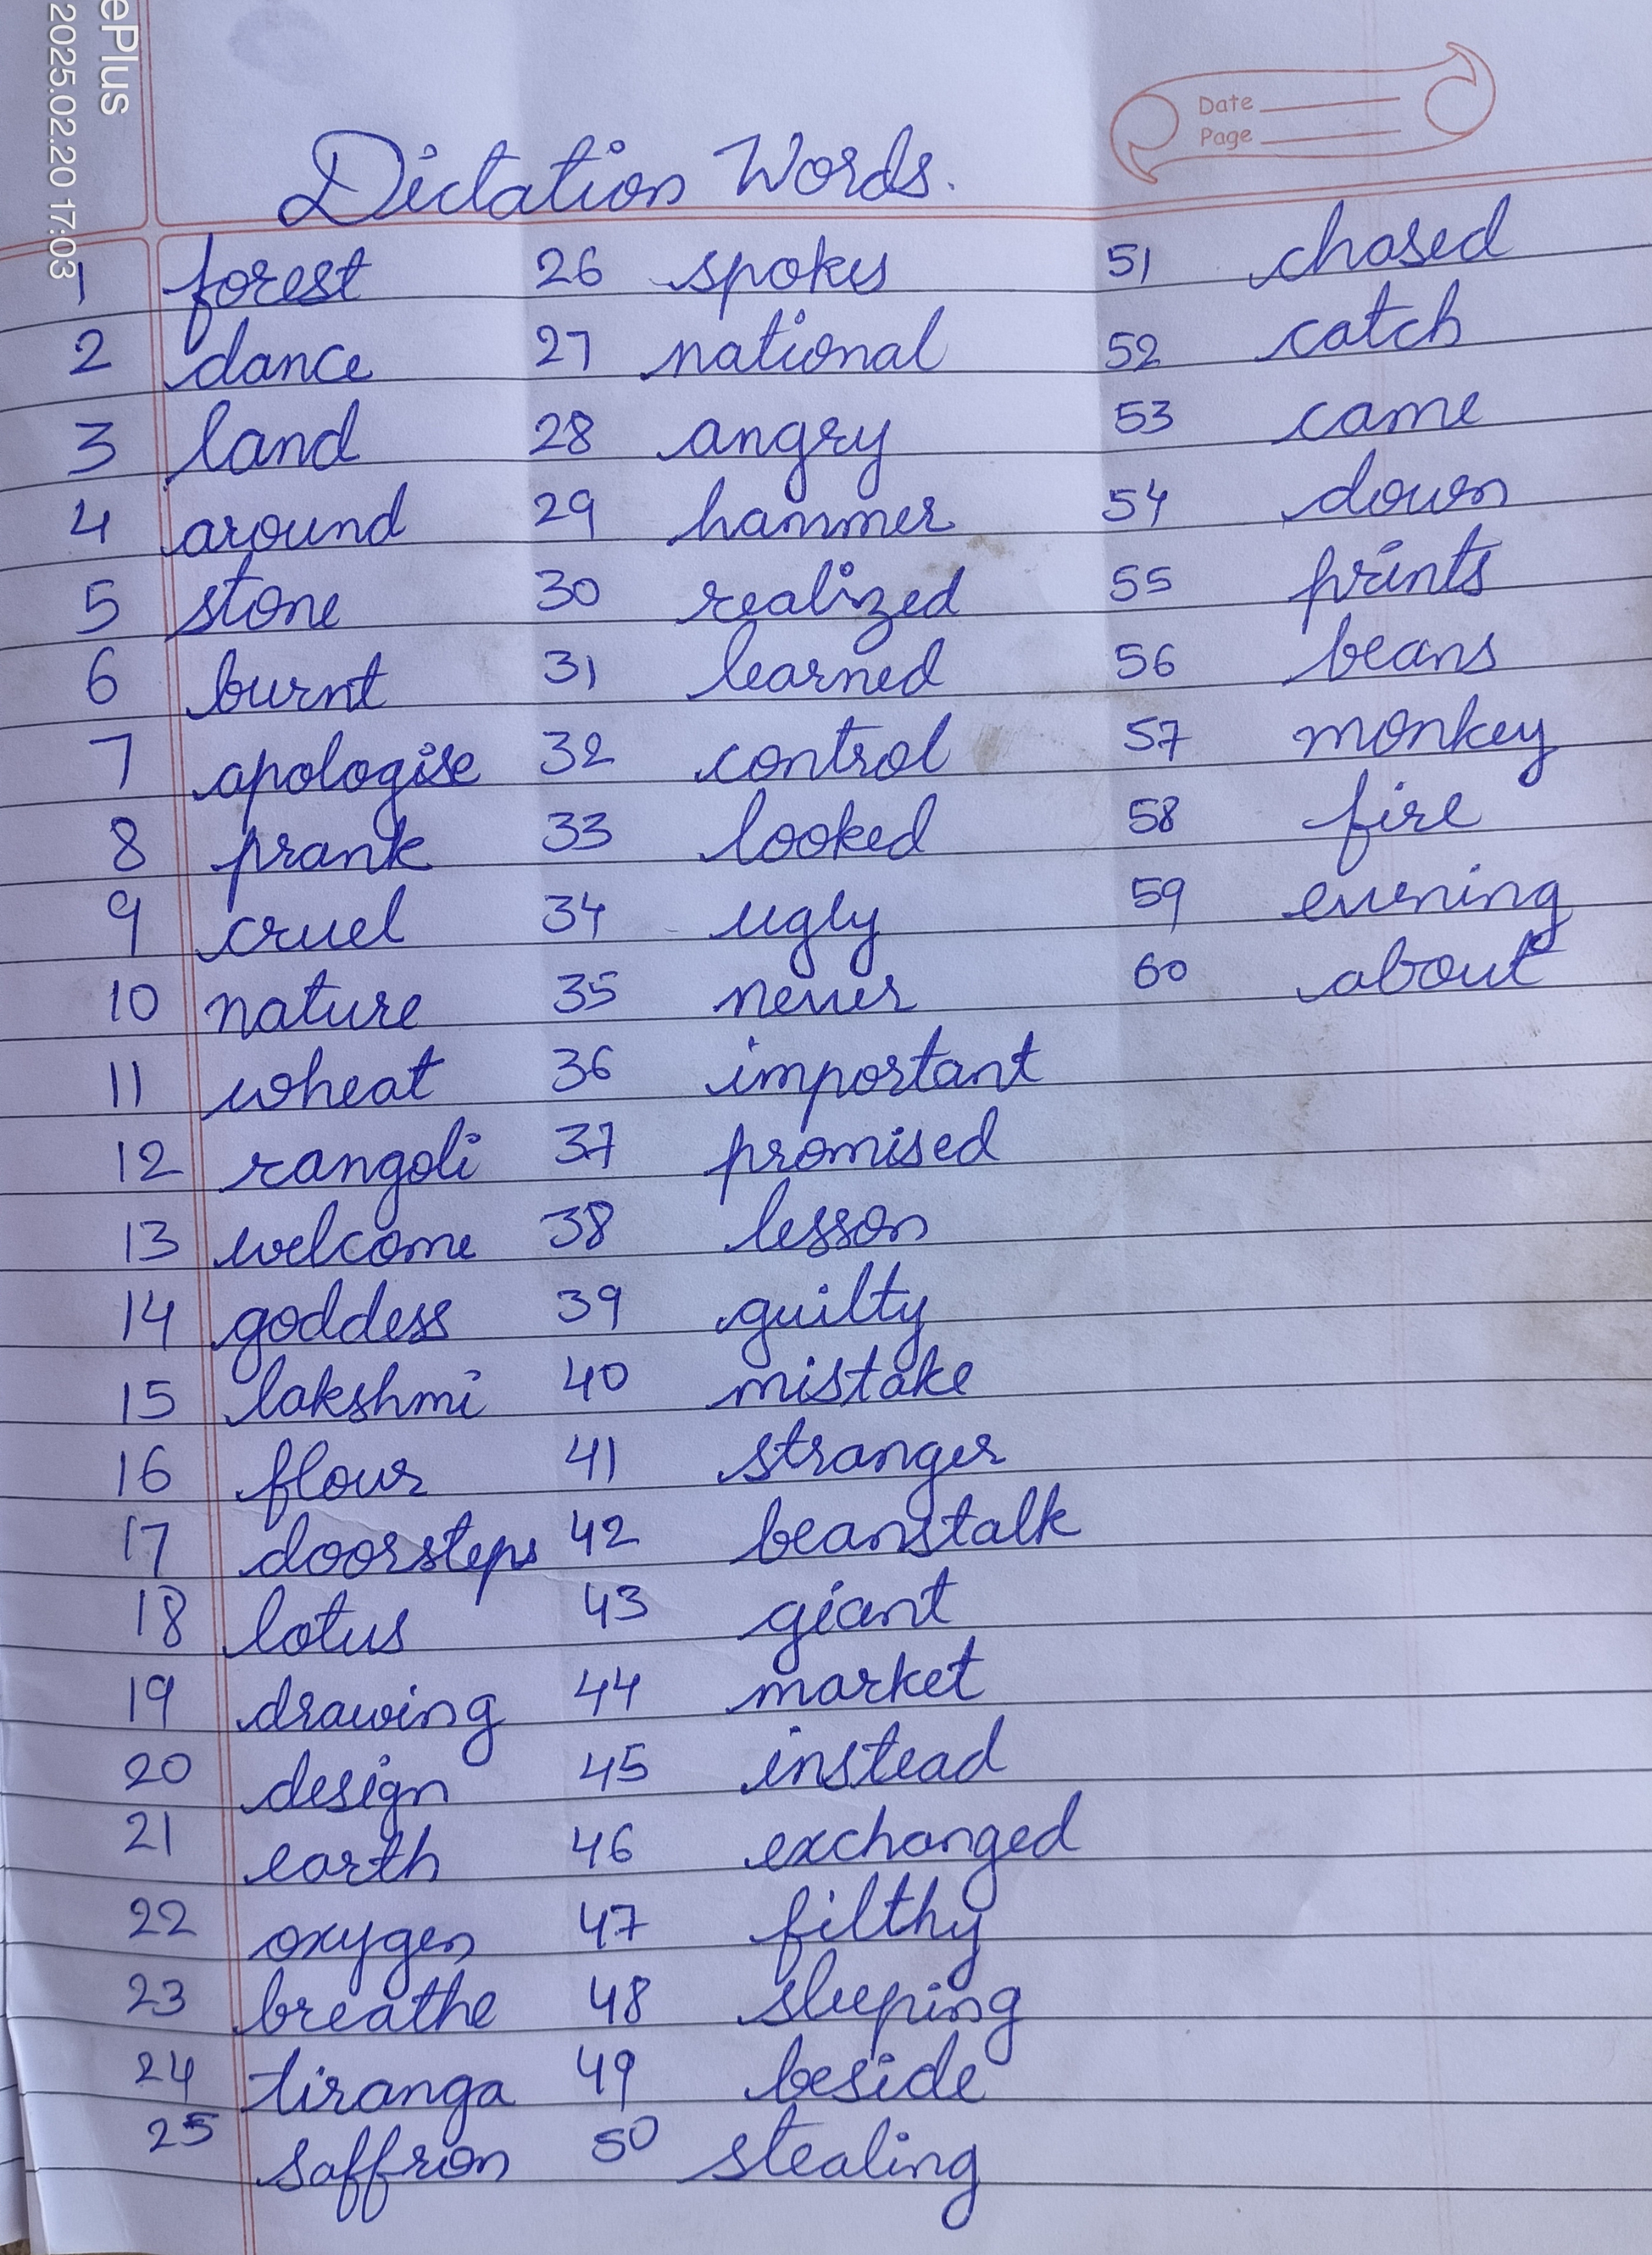 ePlus
2025.02.20 17:03
Date
Page
Dictation Words.
1 forest 26 spokes 51 chased
2 dance 27 national 52 catch
3 land 28 angry 53 came
4 around 29 hammer 54 down
5 stone 30 realized 55 prints
6 burnt 31 learned 56 beans
7 apologise 32 control 57 monkey
8 prank 33 looked 58 fire
9 cruel 34 ugly 59 evening
10 nature 35 never 60 about
11 wheat 36 important
12 rangoli 37 promised
13 welcome 38 lesson
14 goddess 39 guilty
15 lakshmi 40 mistake
16 flour 41 stranger
17 doorsteps 42 beanstalk
18 lotus 43 giant
19 drawing 44 market
20 design 45 instead
21 earth 46 exchanged
22 oxygen 47 filthy
23 breathe 48 sleeping
24 tiranga 49 beside
25 saffron 50 stealing